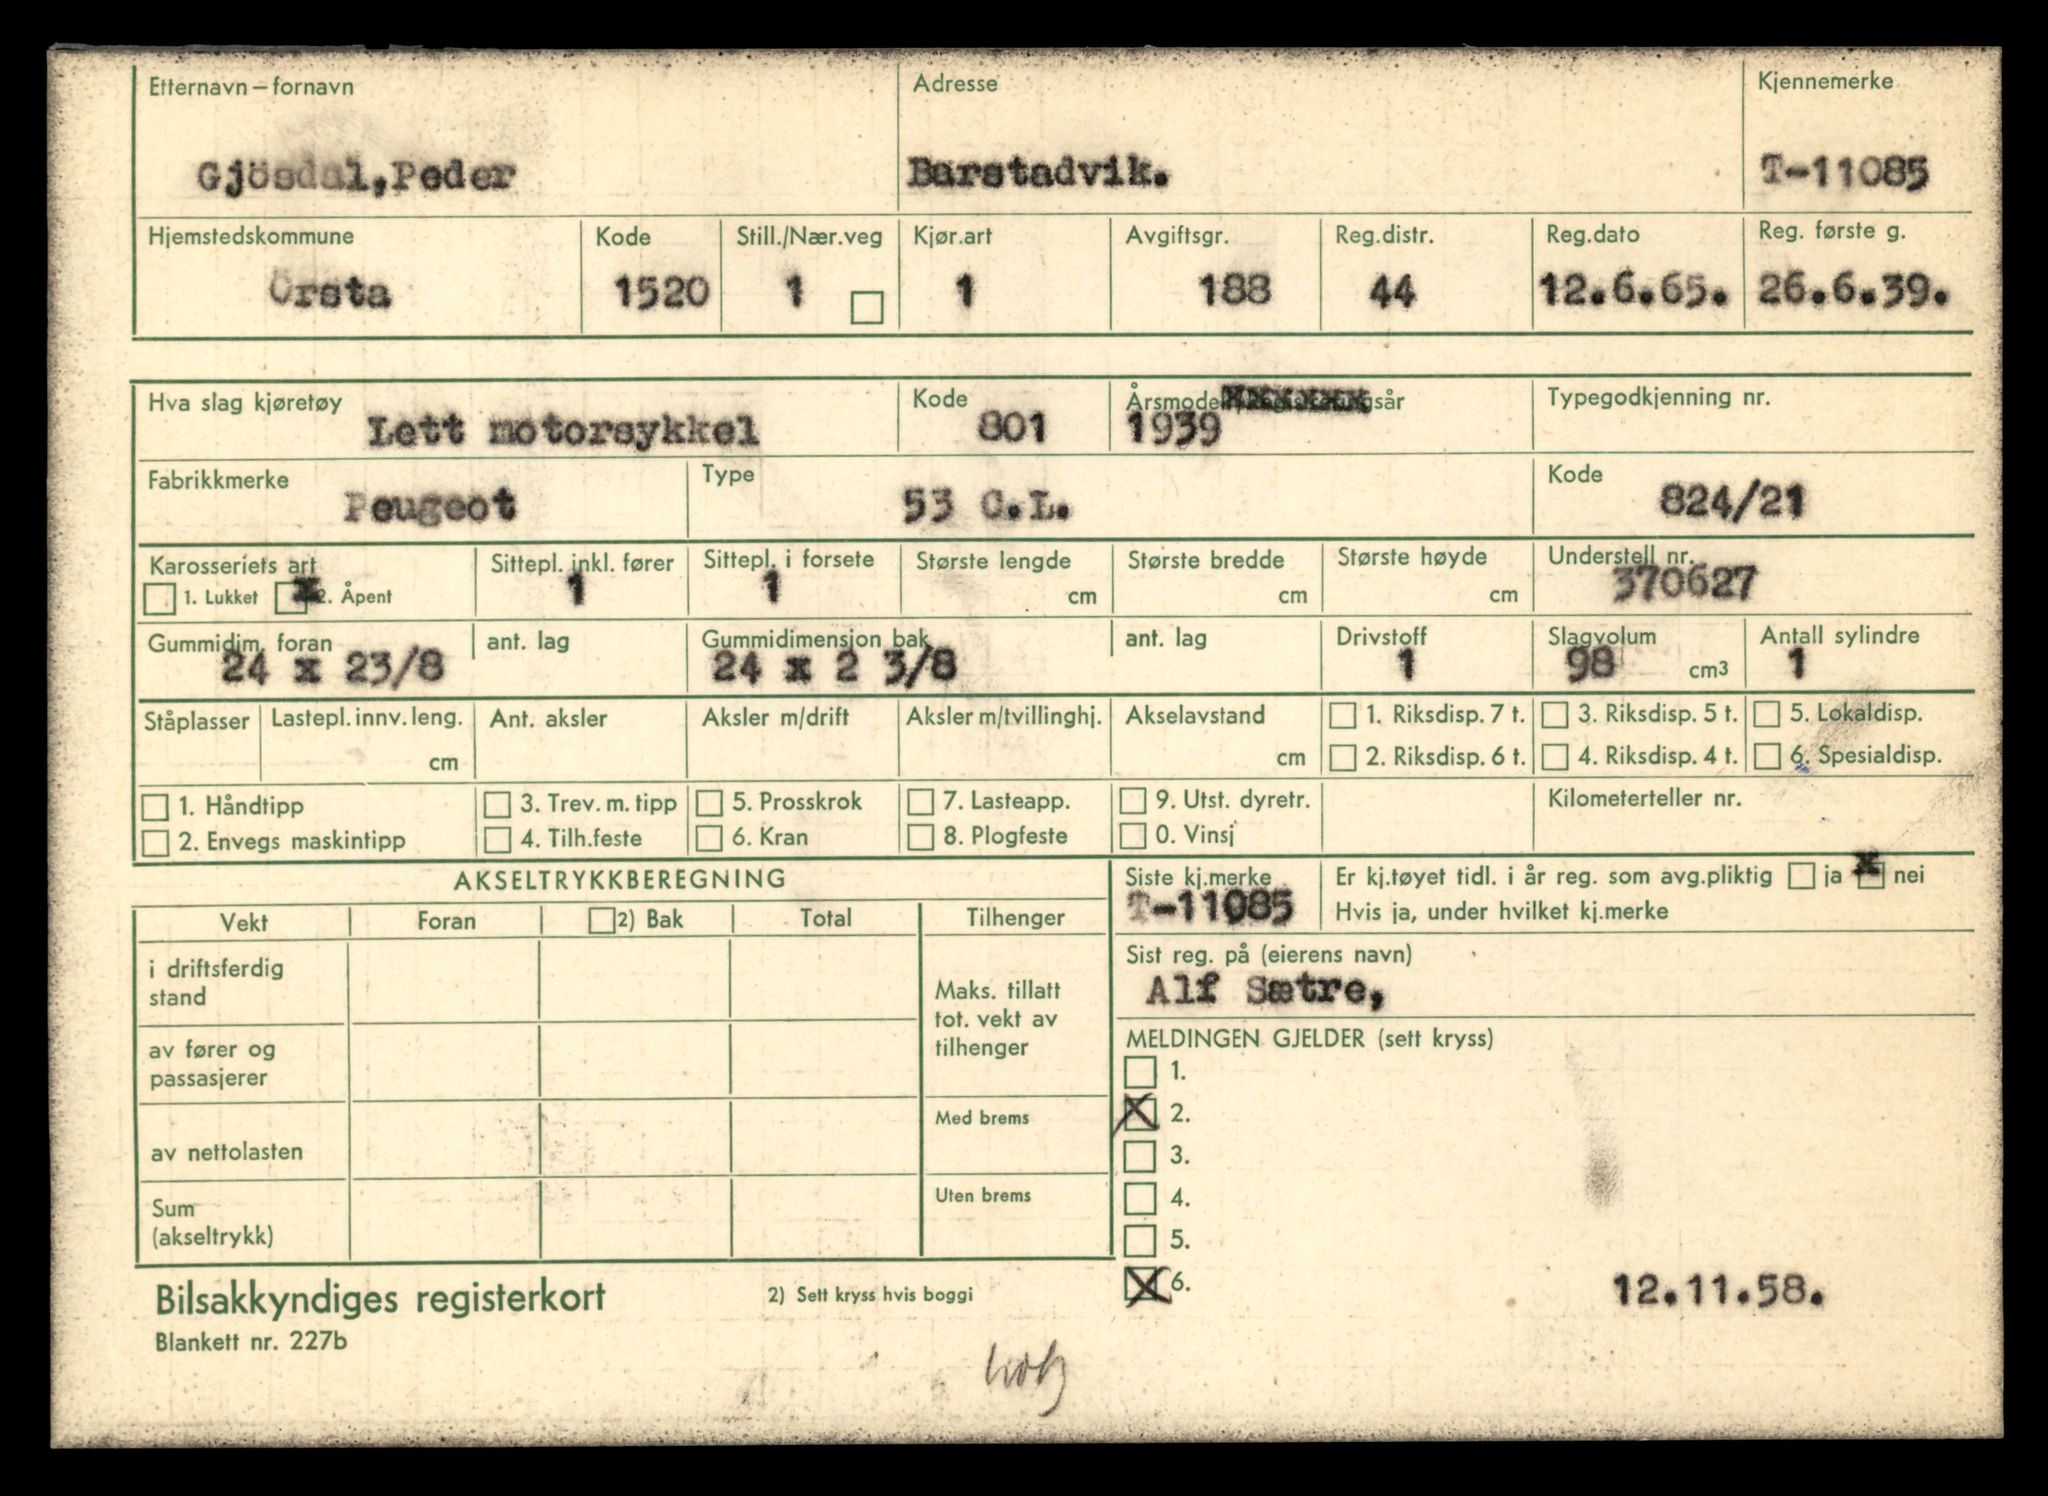 Etternavn – fornavn Adresse Kjennemerke
Gjösdal, Peder Barstadvik. T-11085
Hjemstedskommune Kode Still./Nær.veg Kjør.art Avgiftsgr. Reg.distr. Reg.dato Reg. første g.
Örsta 1520 1 1 188 44 12.6.65. 26.6.39.
Hva slag kjøretøy Kode Årsmodell Typegodkjenning nr.
Lett motorsykkel 801 1939
Fabrikkmerke Type Kode
Peugeot 53 C.L. 824/21
Karosseriets art Sittepl. inkl. fører Sittepl. i forsete Største lengde Største bredde Største høyde Understell nr.
1. Lukket x 2. Åpent 1 1 cm cm cm 370627
Gummidim. foran ant. lag Gummidimensjon bak ant. lag Drivstoff Slagvolum Antall sylindre
24 x 23/8 24 x 2 3/8 1 98 cm3 1
Ståplasser Lastepl. innv. leng. Ant. aksler Aksler m/drift Aksler m/tvillinghj. Akselavstand 1. Riksdisp. 7 t. 3. Riksdisp. 5 t. 5. Lokaldisp.
cm cm 2. Riksdisp. 6 t. 4. Riksdisp. 4 t. 6. Spesialdisp.
1. Håndtipp 3. Trev. m. tipp 5. Prosskrok 7. Lasteapp. 9. Utst. dyretr. Kilometerteller nr.
2. Envegs maskintipp 4. Tilh.feste 6. Kran 8. Plogfeste 0. Vinsj
AKSELTRYKKBEREGNING
Vekt Foran 2) Bak Total Tilhenger
i driftsferdig
stand
av fører og
passasjerer
av nettolasten
Sum
(akseltrykk)
Maks. tillatt
tot. vekt av
tilhenger
Med brems
Uten brems
Siste kj.merke Er kj.tøyet tidl. i år reg. som avg.pliktig ja x nei
T-11085 Hvis ja, under hvilket kj.merke
Sist reg. på (eierens navn)
Alf Sætre,
MELDINGEN GJELDER (sett kryss)
1.
X 2.
3.
4.
5.
X 6.
12.11.58.
Bilsakkyndiges registerkort 2) Sett kryss hvis boggi
Blankett nr. 227b